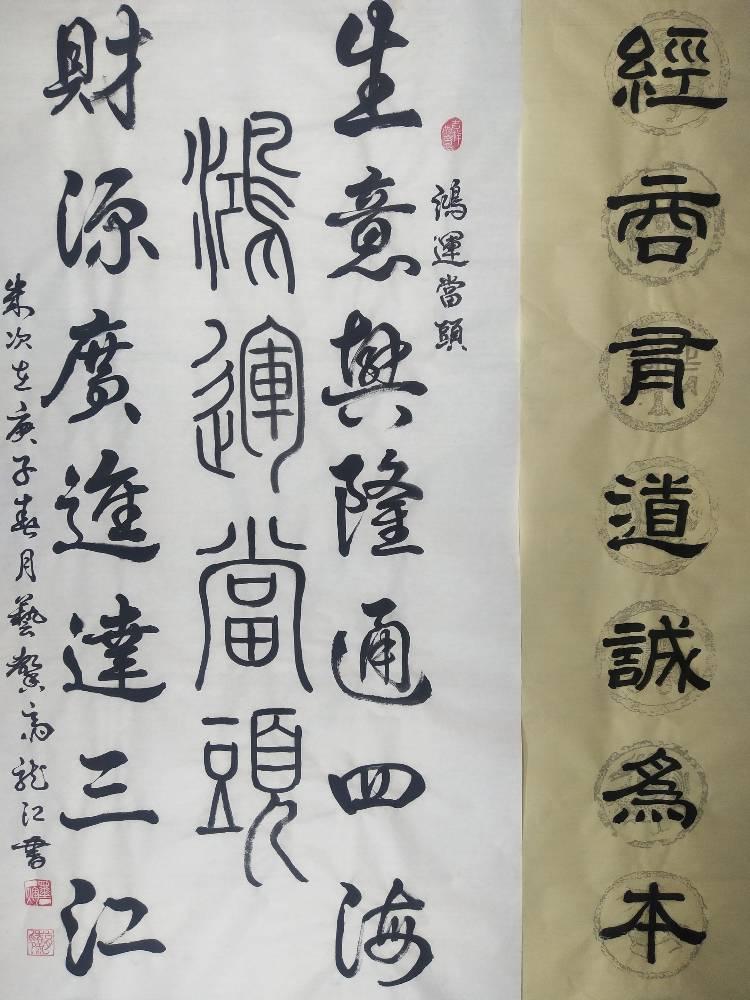 經商有道誠爲本
鴻運當頭
生意興隆通四海
鴻運當頭
財源廣進達三江
歲次在庚子春月藝馨齋龍江書